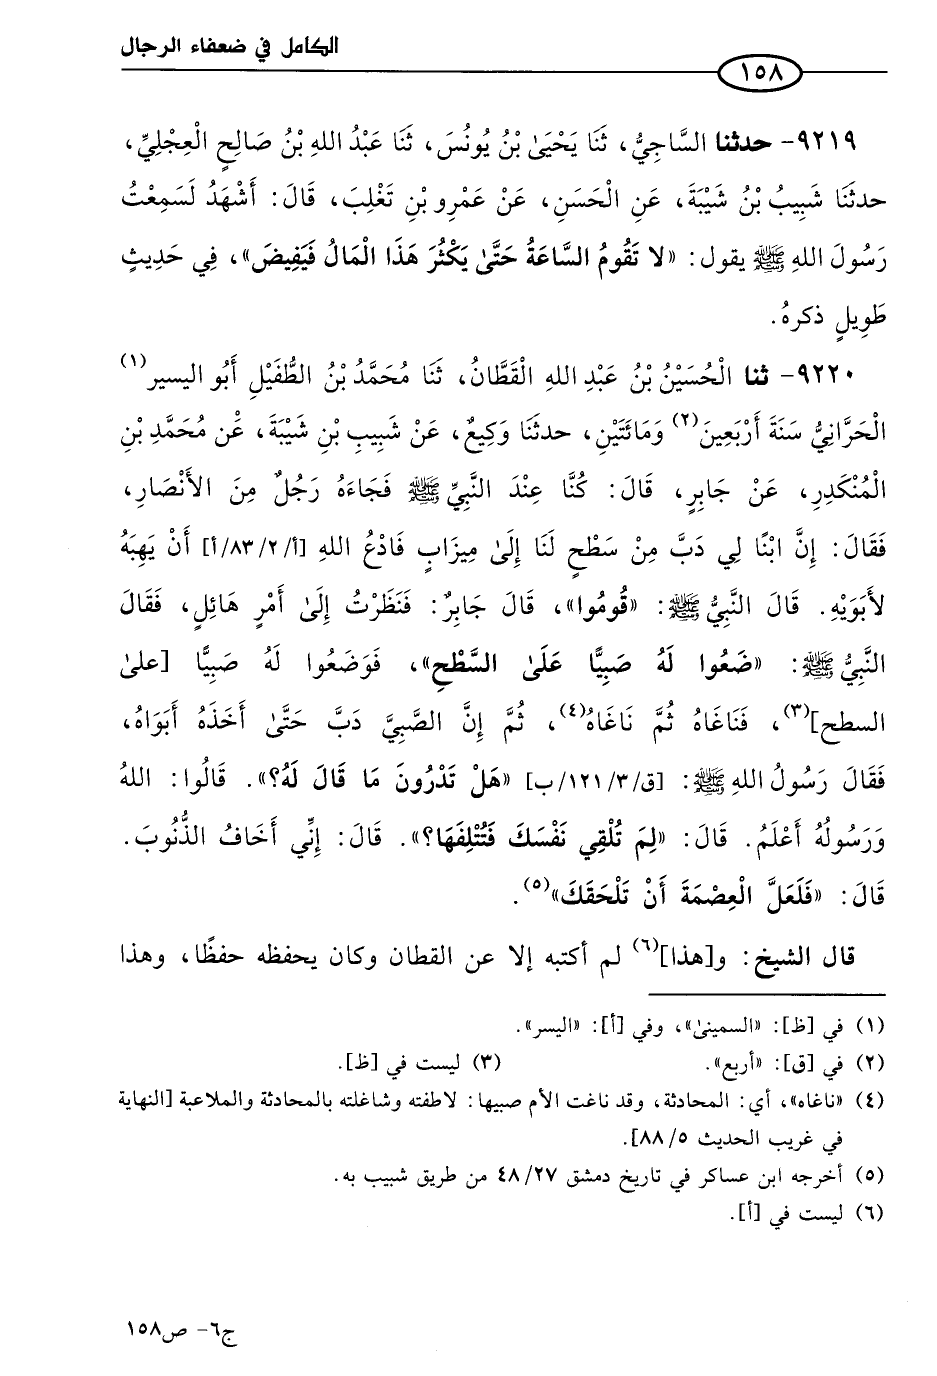 الكامل في ضعفاء الرجال
١٥٨
٩٢١٩- حدثنا السَّاجِيُّ، ثَنَا يَحْيَىٰ بْنُ يُونُسَ، ثَنَا عَبْدُ اللهِ بْنُ صَالِحٍ الْعِجْلِيِّ،
حدثَنَا شَبِيبُ بْنُ شَيْبَةَ، عَنِ الْحَسَنِ، عَنْ عَمْرِو بْنِ تَغْلِبَ، قَالَ: أَشْهَدُ لَسَمِعْتُ
رَسُولَ اللهِ ﷺ يقول: «لا تَقُومُ السَّاعَةُ حَتَّىٰ يَكْثُرَ هَذَا الْمَالُ فَيَفِيضَ»، فِي حَدِيثٍ
طَوِيلٍ ذكرهُ.
٩٢٢٠- ثنا الْحُسَيْنُ بْنُ عَبْدِ اللهِ الْقَطَّانُ، ثَنَا مُحَمَّدُ بْنُ الطُّفَيْلِ أَبُو اليسير(١)
الْحَرَّانِيُّ سَنَةَ أَرْبَعِينَ(٢) وَمَائَتَيْنِ، حدثَنَا وَكِيعٌ، عَنْ شَبِيبِ بْنِ شَيْبَةَ، عَن مُحَمَّدِ بْنِ
الْمُنْكَدِرِ، عَنْ جَابِرٍ، قَالَ: كُنَّا عِنْدَ النَّبِيِّ ﷺ فَجَاءَهُ رَجُلٌ مِنَ الأَنْصَارِ،
فَقَالَ: إِنَّ ابْنًا لِي دَبَّ مِنْ سَطْحٍ لَنَا إِلَىٰ مِيزَابٍ فَادْعُ اللهِ [أ/٨٣/٢/أ] أَنْ يَهِبَهُ
لأَبَوَيْهِ. قَالَ النَّبِيُّ ﷺ: «قُومُوا»، قَالَ جَابِرٌ: فَنَظَرْتُ إِلَىٰ أَمْرٍ هَائِلٍ، فَقَالَ
النَّبِيُّ ﷺ: «ضَعُوا لَهُ صَبِيًّا عَلَىٰ السَّطْحِ»، فَوَضَعُوا لَهُ صَبِيًّا [علىٰ
السطح](٣)، فَنَاغَاهُ ثُمَّ نَاغَاهُ(٤)، ثُمَّ إِنَّ الصَّبِيَّ دَبَّ حَتَّىٰ أَخَذَهُ أَبَوَاهُ،
فَقَالَ رَسُولُ اللهِ ﷺ: [ق/١٢١/٣/ب] «هَلْ تَدْرُونَ مَا قَالَ لَهُ؟». قَالُوا: اللهُ
وَرَسُولُهُ أَعْلَمُ. قَالَ: «لِمَ تُلْقِي نَفْسَكَ فَتُتْلِفَهَا؟». قَالَ: إِنِّي أَخَافُ الذُّنُوبَ.
قَالَ: «فَلَعَلَّ الْعِصْمَةَ أَنْ تَلْحَقَكَ»(٥).
قال الشيخ: و[هذا](٦) لم أكتبه إلا عن القطان وكان يحفظه حفظًا، وهذا
(١) في [ظ]: «السمينىٰ»، وفي [أ]: «اليسر».
(٢) في [ق]: «أربع». (٣) ليست في [ظ].
(٤) «ناغاه»، أي: المحادثة، وقد ناغت الأم صبيها: لاطفته وشاغلته بالمحادثة والملاعبة [النهاية
في غريب الحديث ٨٨/٥].
(٥) أخرجه ابن عساكر في تاريخ دمشق ٤٨/٢٧ من طريق شبيب به.
(٦) ليست في [أ].
ج٦- ص١٥٨